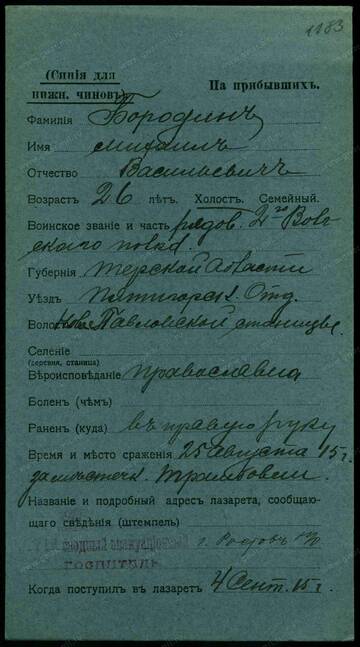 1183
(Синія для
нижн. чиновъ)
На прибывшихъ.
Фамилія Бородинъ
Имя Михаилъ
Отчество Васильевичъ
Возрастъ 26 лѣтъ. Холостъ. Семейный.
Воинское званіе и часть рядов. 2го Волг
скаго полка
Губернія Терской Области
Уѣздъ Пятигорск. Отд.
Волость Ново Павловской станицы
Селеніе
(деревня, станица)
Вѣроисповѣданіе православна
Боленъ (чѣмъ)
Раненъ (куда) въ правую руку
Время и мѣсто сраженія 25 августа 15 г.
за мѣстечк. Трембовли.
Названіе и подробный адресъ лазарета, сообщаю-
щаго свѣдѣнія (штемпель)
г. Ростовъ н/Д
ГОСПИТАЛЬ
Когда поступилъ въ лазаретъ 4 Сент. 15 г